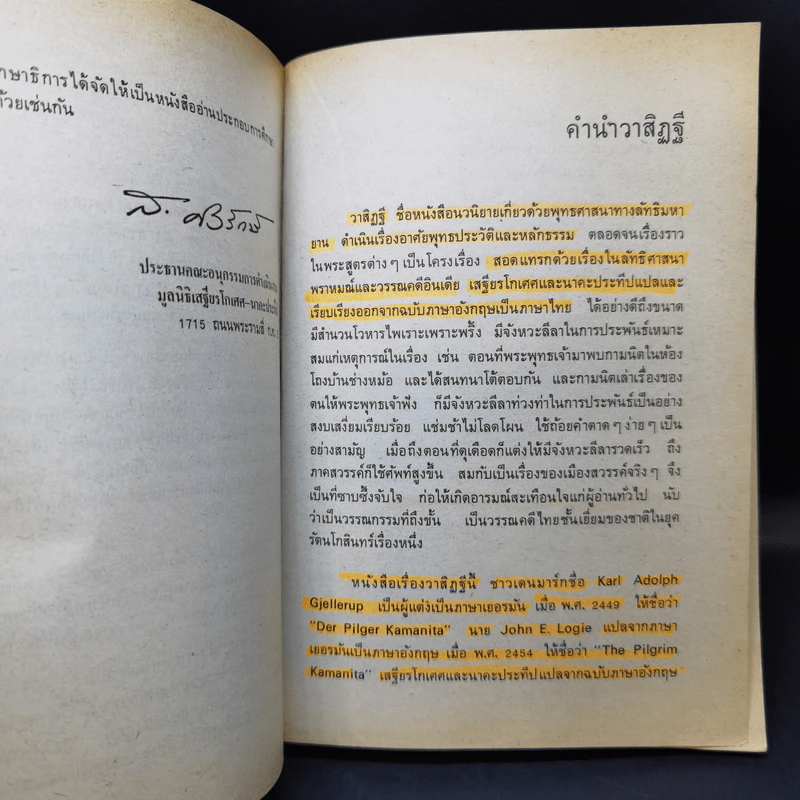 ษาธิการได้จัดให้เป็นหนังสืออ่านประกอบการศึกษา
ด้วยเช่นกัน
ส. ศิวรักษ์
ประธานคณะอนุกรรมการดำเนินงาน
มูลนิธิเสฐียรโกเศศ-นาคะประทีป
1715 ถนนพระรามที่
คำนำวาสิฏฐี
วาสิฏฐี ชื่อหนังสือนวนิยายเกี่ยวด้วยพุทธศาสนาทางลัทธิมหา
ยาน ดำเนินเรื่องอาศัยพุทธประวัติและหลักธรรม ตลอดจนเรื่องราว
ในพระสูตรต่าง ๆ เป็นโครงเรื่อง สอดแทรกด้วยเรื่องในลัทธิศาสนา
พราหมณ์และวรรณคดีอินเดีย เสฐียรโกเศศและนาคะประทีปแปลและ
เรียบเรียงออกจากฉบับภาษาอังกฤษเป็นภาษาไทย ได้อย่างดีถึงขนาด
มีสำนวนโวหารไพเราะเพราะพริ้ง มีจังหวะลีลาในการประพันธ์เหมาะ
สมแก่เหตุการณ์ในเรื่อง เช่น ตอนที่พระพุทธเจ้ามาพบกามนิตในห้อง
โถงบ้านช่างหม้อ และได้สนทนาโต้ตอบกัน และกามนิตเล่าเรื่องของ
ตนให้พระพุทธเจ้าฟัง ก็มีจังหวะลีลาท่วงท่าในการประพันธ์เป็นอย่าง
สงบเสงี่ยมเรียบร้อย แช่มช้าไม่โลดโผน ใช้ถ้อยคำดาด ๆ ง่าย ๆ เป็น
อย่างสามัญ เมื่อถึงตอนที่ดุเดือดก็แต่งให้มีจังหวะลีลารวดเร็ว ถึง
ภาคสวรรค์ก็ใช้ศัพท์สูงขึ้น สมกับเป็นเรื่องของเมืองสวรรค์จริง ๆ จึง
เป็นที่ซาบซึ้งจับใจ ก่อให้เกิดอารมณ์สะเทือนใจแก่ผู้อ่านทั่วไป นับ
ว่าเป็นวรรณกรรมที่ถึงขั้น เป็นวรรณคดีไทยชั้นเยี่ยมของชาติในยุค
รัตนโกสินทร์เรื่องหนึ่ง
หนังสือเรื่องวาสิฏฐีนี้ ชาวเดนมาร์กชื่อ Karl Adolph
Gjellerup เป็นผู้แต่งเป็นภาษาเยอรมัน เมื่อ พ.ศ. 2449 ให้ชื่อว่า
"Der Pilger Kamanita" นาย John E. Logie แปลจากภาษา
เยอรมันเป็นภาษาอังกฤษ เมื่อ พ.ศ. 2454 ให้ชื่อว่า "The Pilgrim
Kamanita" เสฐียรโกเศศและนาคะประทีปแปลจากฉบับภาษาอังกฤษ